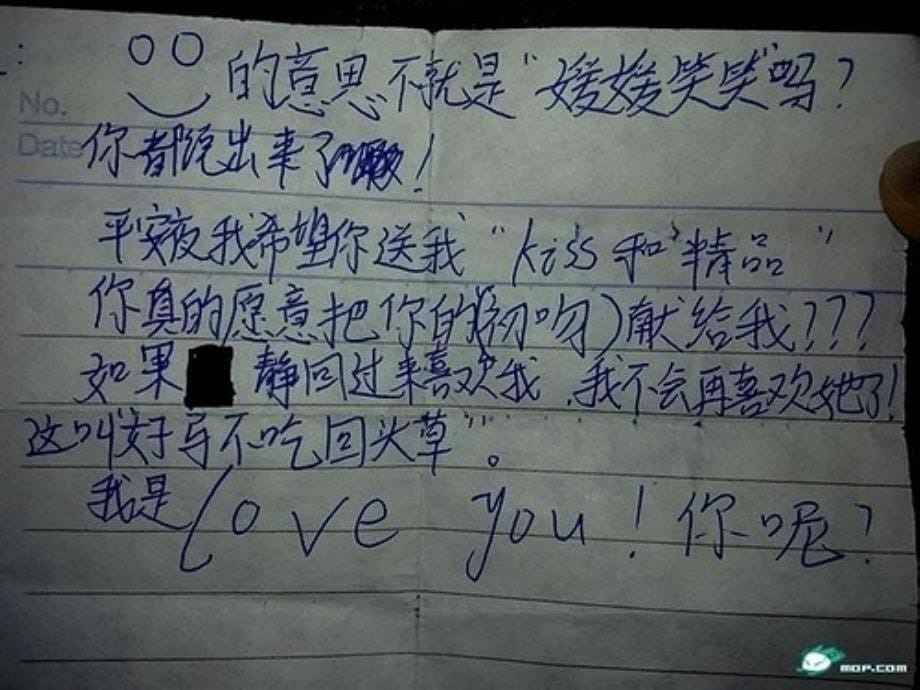 No.
Date
的意思不就是"媛媛笑笑"吗?
你都说出来了!
平安夜我希望你送我"kiss和精品"
你真的愿意把你的(初吻)献给我???
如果 静回过来喜欢我,我不会再喜欢她了!
这叫"好马不吃回头草"。
我是love you!你呢?
MOP.COM